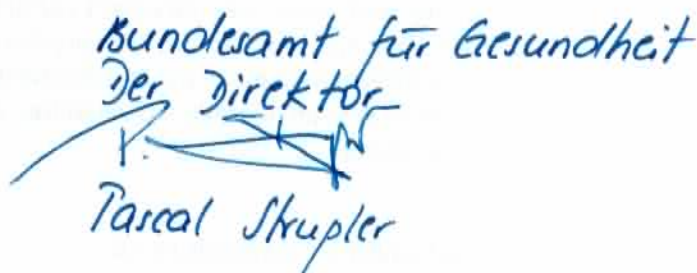 Bundesamt für Gesundheit
Der Direktor
P.
Pascal Strupler